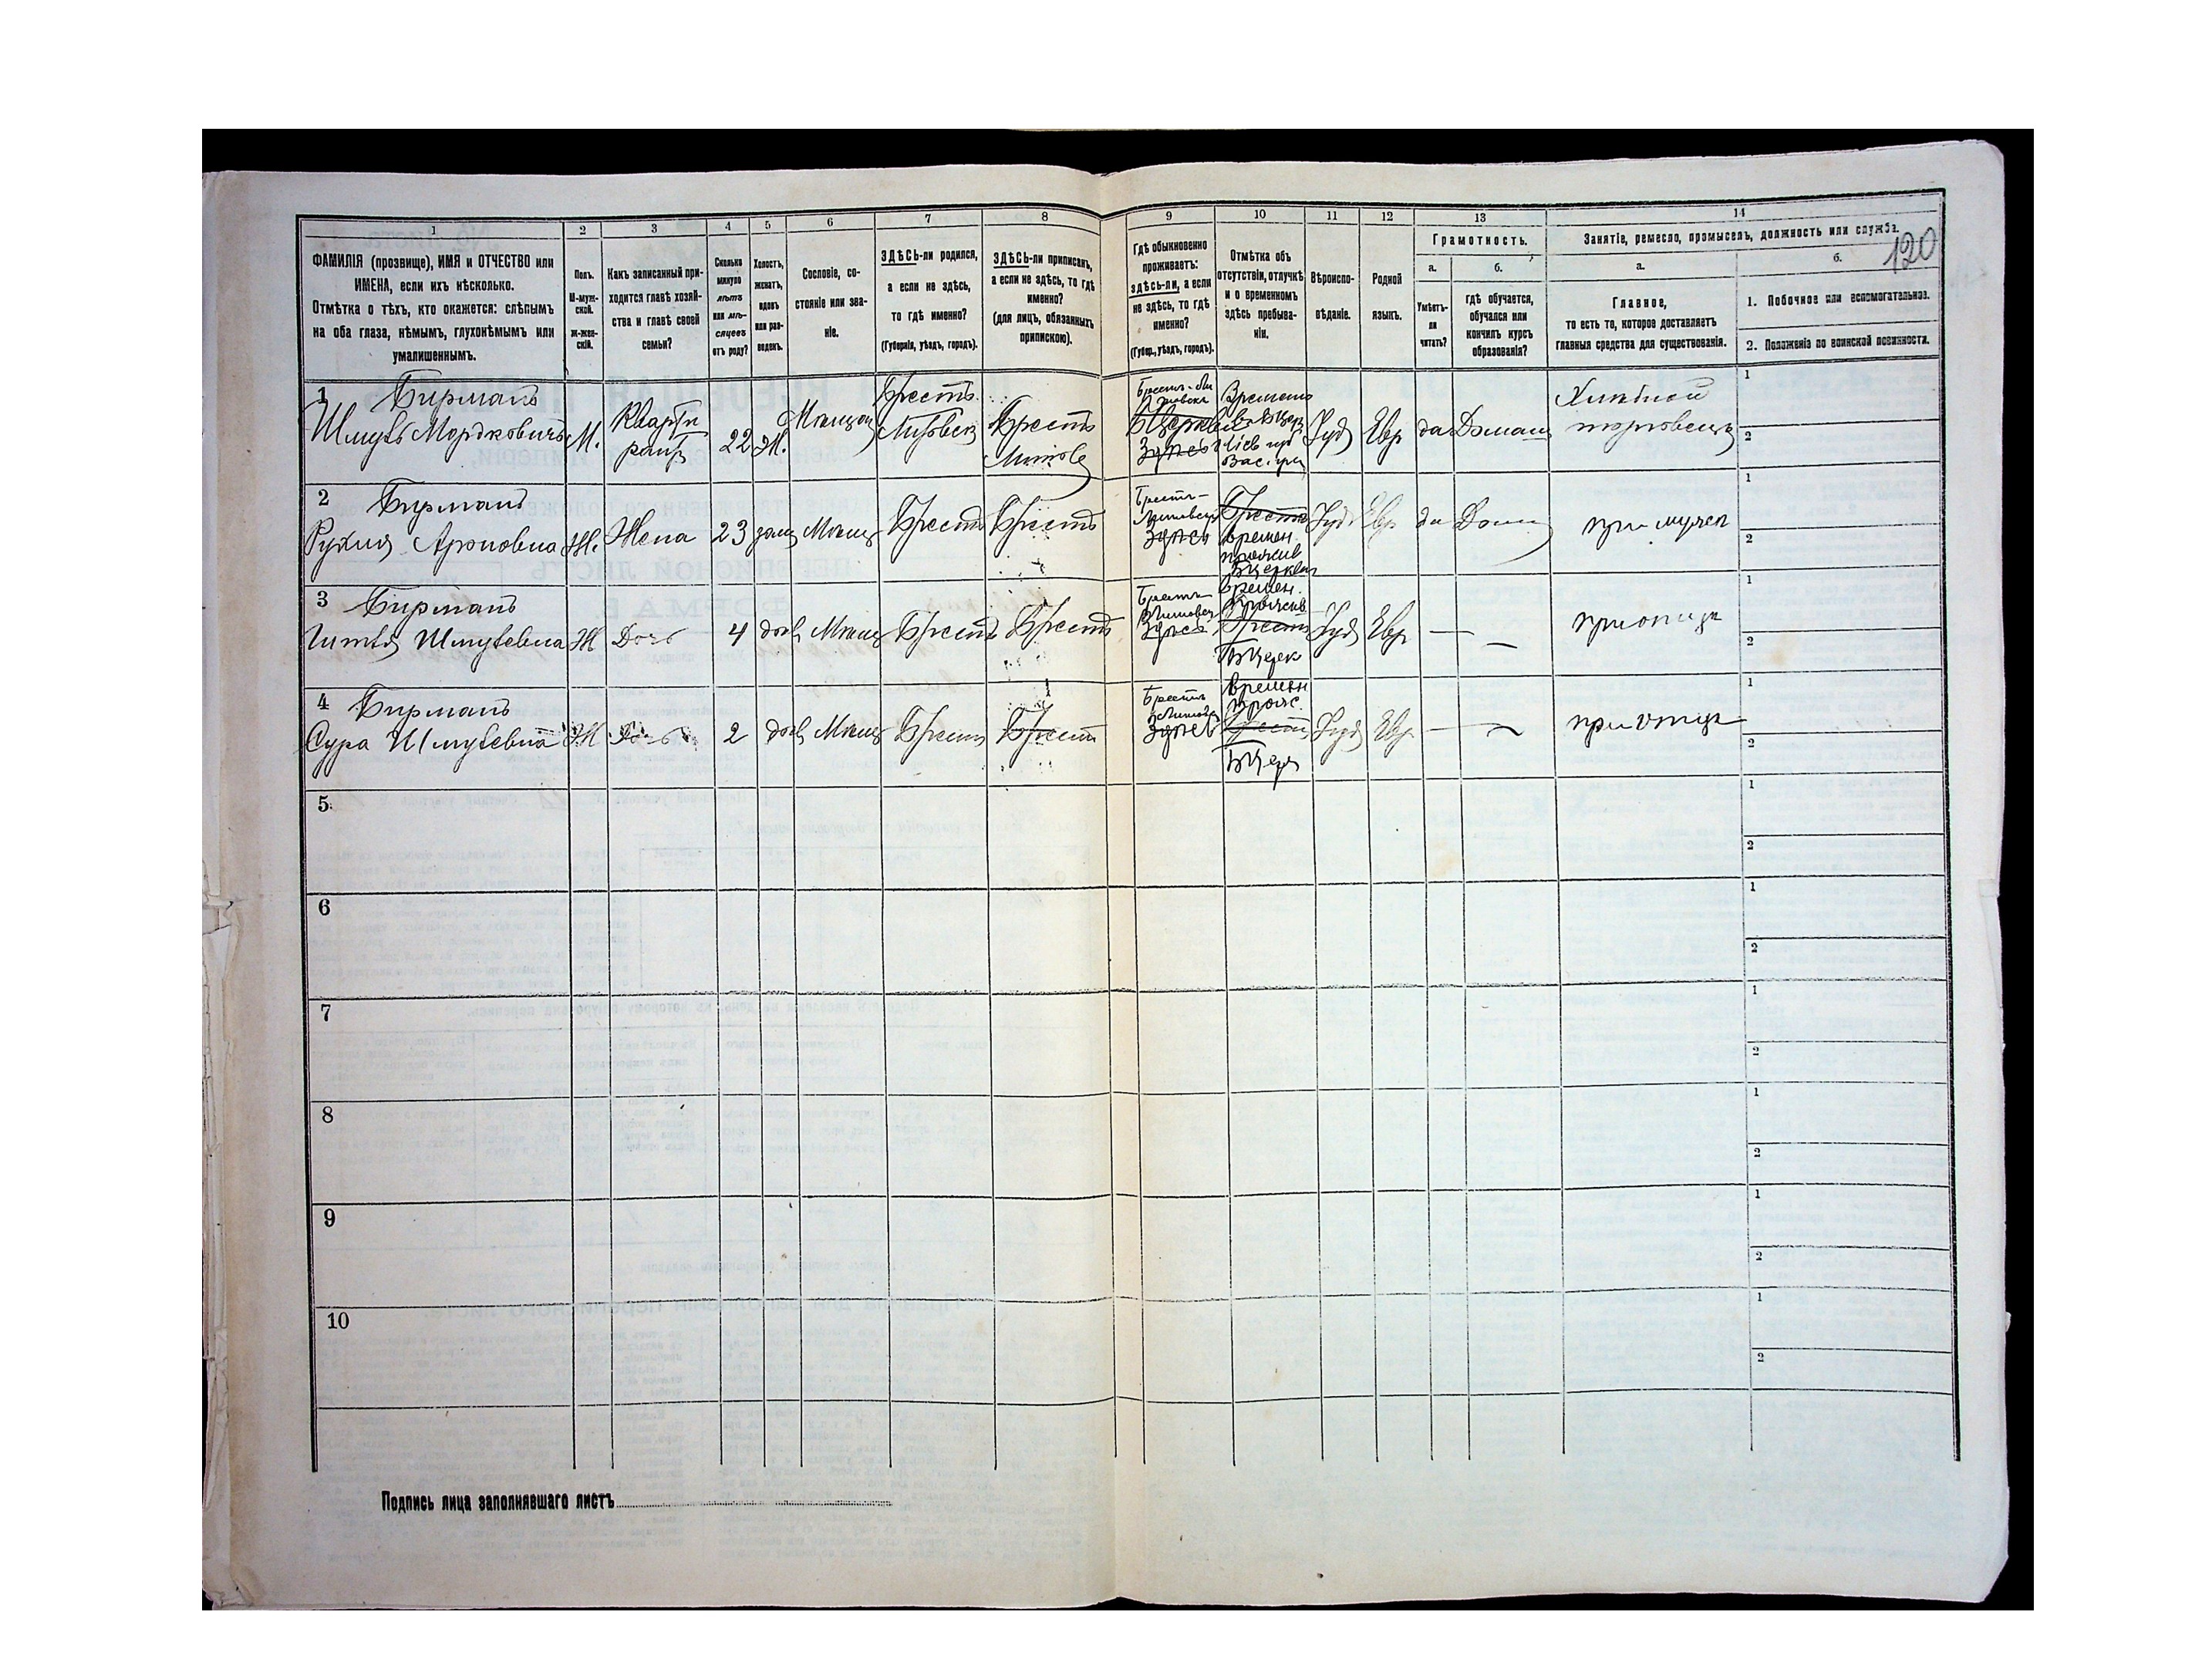 1 2 3 4 5 6 7 8 9 10 11 12 13 14
120
ФАМИЛІЯ (прозвище), ИМЯ и ОТЧЕСТВО или
ИМЕНА, если ихъ нѣсколько.
Отмѣтка о тѣхъ, кто окажется: слѣпымъ
на оба глаза, нѣмымъ, глухонѣмымъ или
умалишеннымъ.
Полъ.
М-муж-
ской.
Ж-жен-
скій.
Какъ записанный при-
ходится главѣ хозяй-
ства и главѣ своей
семьи?
Сколько
минуло
лѣтъ
или мѣ-
сяцевъ
отъ роду?
Холостъ,
женатъ,
вдовъ
или раз-
веденъ.
Сословіе, со-
стояніе или зва-
ніе.
ЗДѢСЬ-ли родился,
а если не здѣсь,
то гдѣ именно?
(Губернія, уѣздъ, городъ).
ЗДѢСЬ-ли приписанъ,
а если не здѣсь, то гдѣ
именно?
(для лицъ, обязанныхъ
припискою).
Гдѣ обыкновенно
проживаетъ:
здѣсь-ли, а если
не здѣсь, то гдѣ
именно?
(Губер., уѣздъ, городъ).
Отмѣтка объ
отсутствіи, отлучкѣ
и о временномъ
здѣсь пребыва-
ніи.
Вѣроиспо-
вѣданіе.
Родной
языкъ.
Грамотность.
а.
Умѣетъ-
ли
читать?
б.
гдѣ обучается,
обучался или
кончилъ курсъ
образованія?
Занятіе, ремесло, промыселъ, должность или служба.
а.
Главное,
то есть то, которое доставляетъ
главныя средства для существованія.
б.
1. Побочное или вспомогательное.
2. Положеніе по воинской повинности.
1 Бирманъ
Шмуль Мордковичъ М. Квартирантъ 22 Ж. Мѣщан Брестъ Литовск Брестъ Литов Іуд Евр да Домаш
1
2
2 Бирманъ
Рухля Ароновна Ж. Жена 23 зам Мѣщ Брестъ Брестъ Брестъ-Литовск Здѣсь Брестъ времен. прожив БЦеркви Іуд Евр да Дом при мужѣ
1
2
3 Бирманъ
Шмулевна Ж Дочь 4 дѣв Мѣщ Брестъ Брестъ Брестъ Литовск Здѣсь времен. прожив Брестъ БЦерк Іуд Евр — — при отцѣ
1
2
4 Бирманъ
Сура Шмулевна Ж Дочь 2 дѣв Мѣщ Брестъ Брестъ Брестъ Литовск Здѣсь времен прож. Брестъ БЦерк Іуд Евр — — при отцѣ
1
2
5
1
2
6
1
2
7
1
2
8
1
2
9
1
2
10
1
2
Подпись лица заполнявшаго листъ